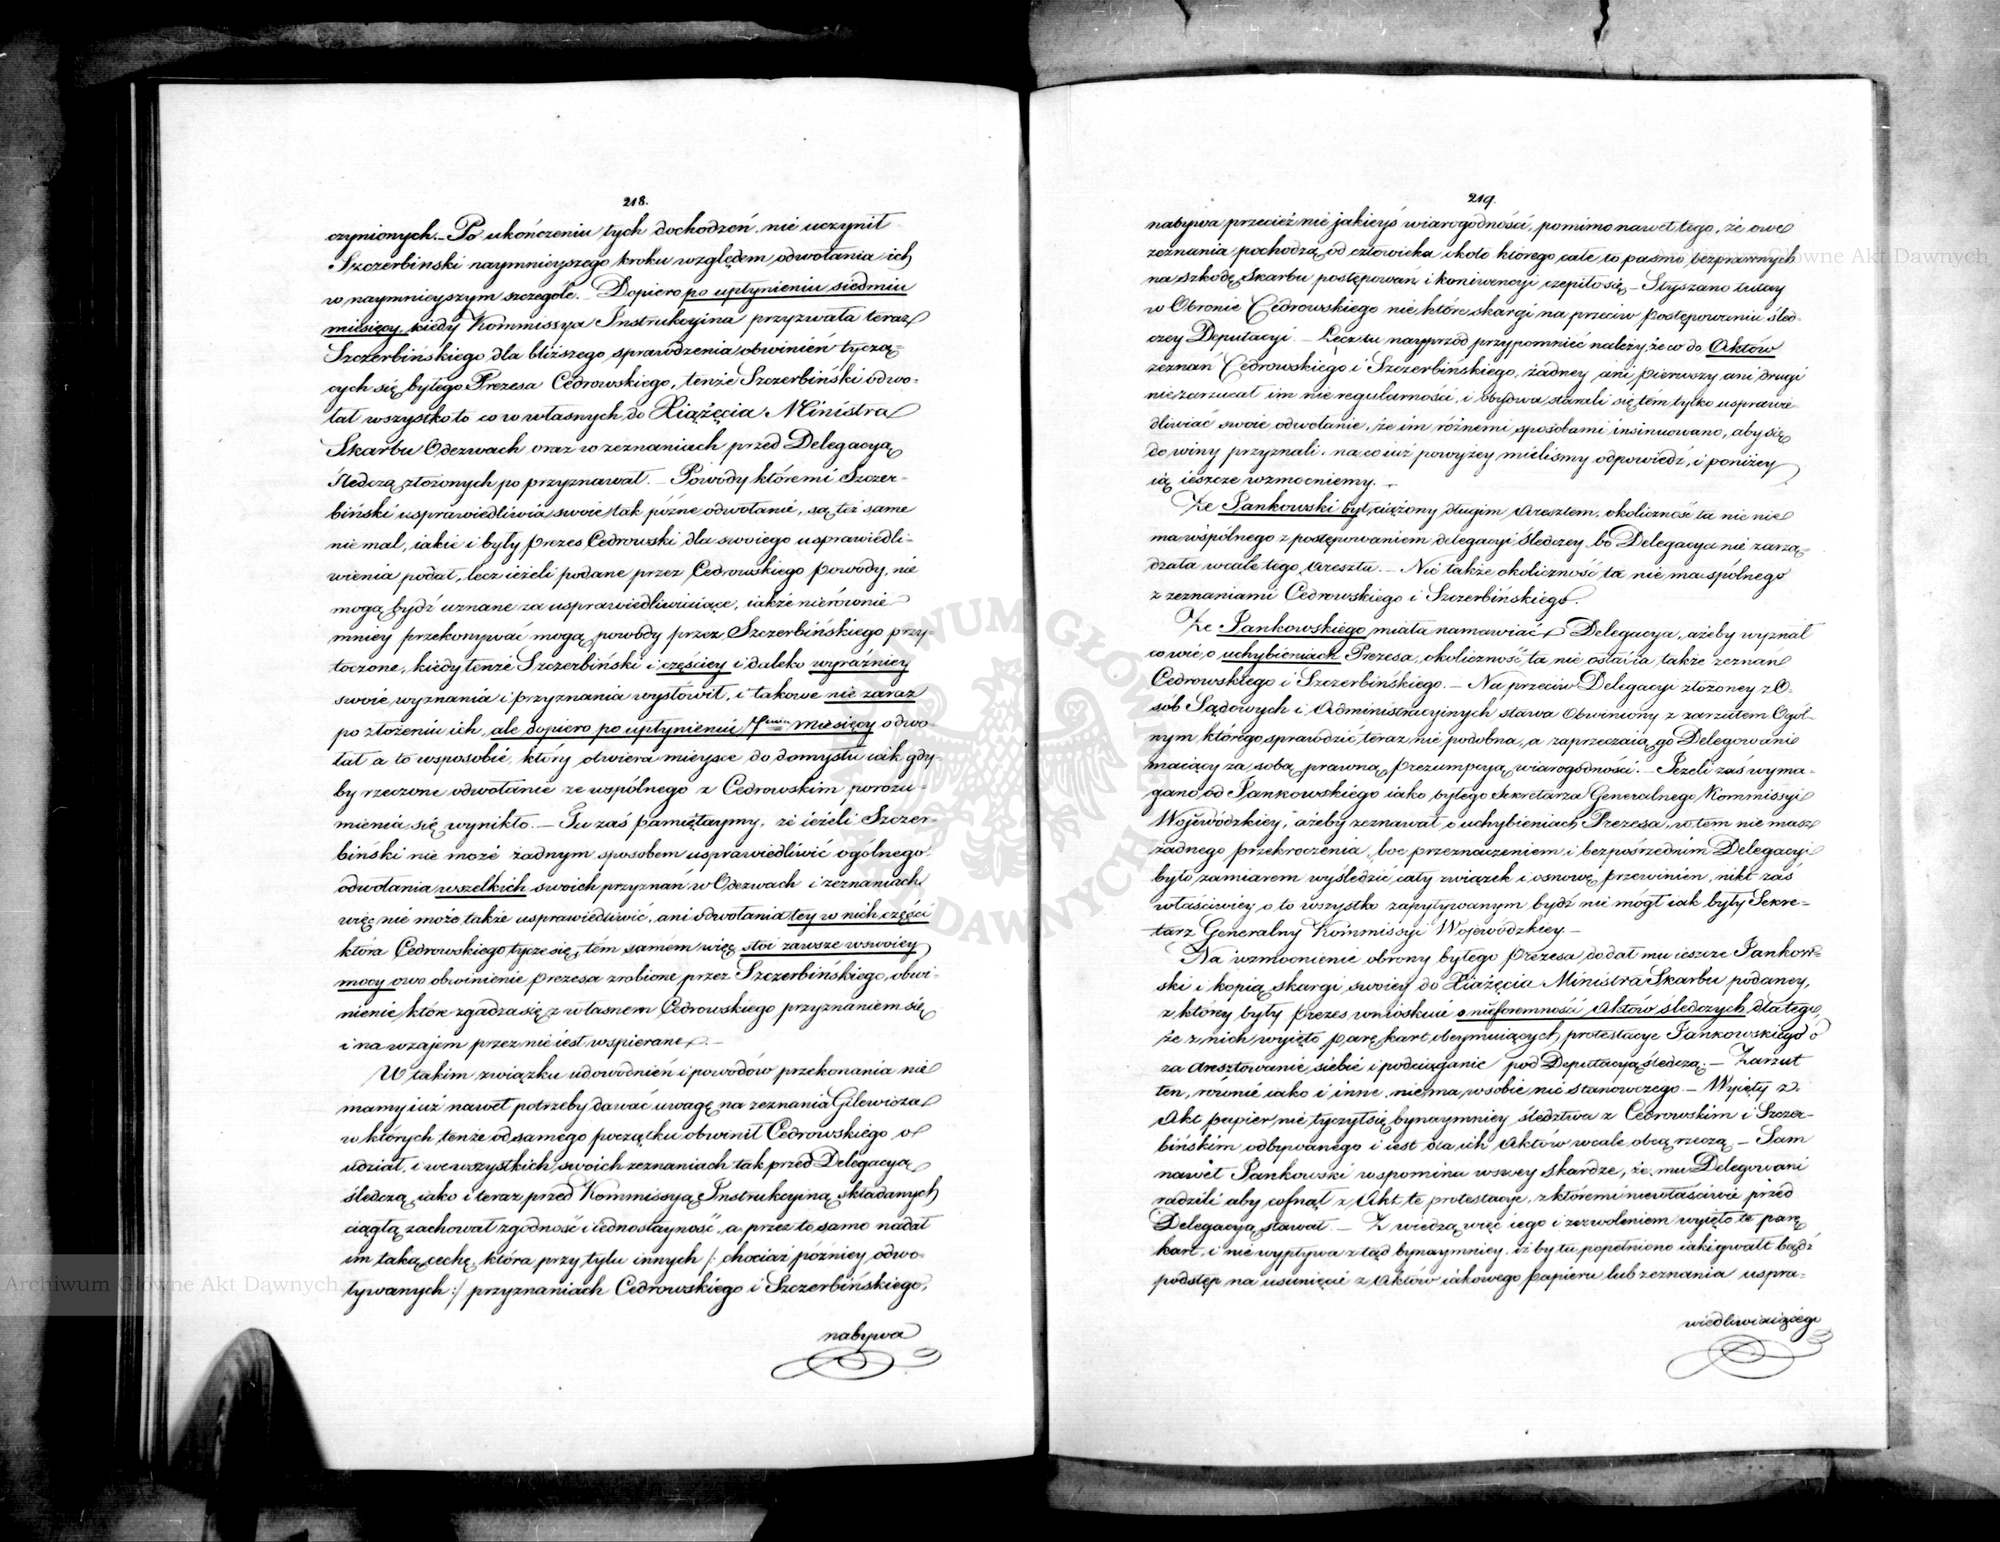 218.
czynionych. – Po ukończeniu tych dochodzeń, nie uczynił
Szczerbinski naymnieyszego kroku względem odwołania ich
w naymnieyszym szczegole. – Dopiero po upłynieniu siedmiu
miesięcy, kiedy Kommissya Instrukcyina przyzwała teraz
Szczerbińskiego dla bliższego sprawdzenia obwinień tyczą-
cych się byłego Prezesa Cedrowskiego, tenże Szczerbiński odwo-
łał wszystko to co w własnych do Xiążęcia Ministra
Skarbu Odezwach oraz w zeznaniach przed Delegacyą
Śledczą złożonych po przyznawał. – Powody któremi Szczer-
biński usprawiedliwia swoie tak późne odwołanie, są też same
nie mal, iakie i były Prezes Cedrowski dla swoiego usprawiedli-
wienia podał, lecz ieżeli podane przez Cedrowskiego powody, nie
mogą bydź uznane za usprawiedliwiaiące, iakże nierównie
mniey przekonywać mogą powody przez Szczerbińskiego przy-
toczone, kiedy tenże Szczerbiński i częściey i daleko wyraźniey
swoie wyznania i przyznania wysłówił, i takowe nie zaraz
po złożeniu ich, ale dopiero po upłynieniu 7miu miesięcy odwo-
łał a to w sposobie, który otwiera mieysce do domysłu iak gdy-
by rzeczone odwołanie ze wspólnego z Cedrowskim porozu-
mienia się wynikło. – Tu zaś pamiętaymy, że ieżeli Szczer-
biński nie może żadnym sposobem usprawiedliwić ogólnego
odwołania wszelkich swoich przyznań w Odezwach i zeznaniach
więc nie może także usprawiedliwić, ani odwołania tey w nich części
która Cedrowskiego tycze się, tém samém więc stoi zawsze w swoiey
mocy owo obwinienie Prezesa zrobione przez Szczerbińskiego, obwi-
nienie, które zgadza się z własnem Cedrowskiego przyznaniem się,
i na wzajem przez nie iest wspierane. –
W takim związku udowodnień i powodów przekonania nie
mamy iuż nawet potrzeby dawać uwagę na zeznania Gilewicza
w których tenże od samego początku obwinił Cedrowskiego o
udział, i we wszystkich swoich zeznaniach tak przed Delegacyą
śledczą, iako i teraz przed Kommissyą Instrukcyiną składanych
ciągłą zachował zgodność i iednostayność, a przez to samo nadał
im taką cechę, która przy tylu innych /: chociaż późniey odwo-
ływanych :/ przyznaniach Cedrowskiego i Szczerbińskiego,
nabywa
219.
nabywa przecież nie jakieyś wiarogodności, pomimo nawet tego, że owe
zeznania pochodzą od człowieka około którego całe to pasmo bezprawnych
na szkodę Skarbu postępowań i koniwencyi czepiło się – Słyszano tutay
w Obronie Cedrowskiego nie które skargi na przeciw postępowaniu śled-
czey Deputacyi. – Lecz tu nayprzód przypomnieć należy, że co do Aktów
zeznań Cedrowskiego i Szczerbińskiego, żadney ani pierwszy ani drugi
nie zarzucał im nie regularności, i obydwa starali się tém tylko usprawie-
dliwiać swoie odwołanie, że im różnemi sposobami insinuowano, aby się
do winy przyznali, na co iuż powyżey mieliśmy odpowiedź, i poniżey
ią ieszcze wzmocniemy. –
Że Jankowski był ciążony długim aresztem, okoliczność ta nic nie
ma wspólnego z postępowaniem delegacyi śledczey, bo Delegacya nie zarzą-
dzała wcale tego aresztu. – Nic także okoliczność ta nie ma spólnego
z zeznaniami Cedrowskiego i Szczerbińskiego.
Że Jankowskiego miała namawiać Delegacya, ażeby wyznał
co wie, o uchybieniach Prezesa, okoliczność ta nie osłabia także zeznań
Cedrowskiego i Szczerbińskiego. – Na przeciw Delegacyi złożoney z O-
sób Sądowych i Administracyinych stawa Obwiniony z zarzutem Ogól-
nym którego sprawdzić teraz nie podobna, a zaprzeczaią go Delegowani
maiący za sobą prawną prezumpcyą wiarogodności. – Jeżeli zaś wyma-
gano od Jankowskiego iako byłego Sekretarza Generalnego Kommissyi
Wojewódzkiey, ażeby zeznawał o uchybieniach Prezesa, w tem nie masz
żadnego przekroczenia, boć przeznaczeniem i bezpośrzednim Delegacyi
było zamiarem wyśledzić cały związek i osnowę przewinien, nikt zaś
właściwiey o to wszystko zapytywanym bydź nie mógł iak były Sekre-
tarz Generalny Kommissyi Wojewódzkiey. –
Na wzmocnienie obrony byłego Prezesa, dodał mu ieszcze Jankow-
ski i kopią skargi swoiey do Xiążęcia Ministra Skarbu podaney,
z którey były Prezes wnioskuie o nieforemności Aktów śledczych dla tego,
że z nich wyięto parę kart obeymuiących protestacye Jankowskiego o
za aresztowanie siebie i podciąganie pod Deputacyą śledczą. – Zarzut
ten, równie iako i inne, nie ma w sobie nic stanowczego. – Wyięty z
Akt papier, nie tyczył się bynaymniey śledztwa z Cedrowskim i Szczer-
bińskim odbywanego i iest dla ich Aktów wcale obcą rzeczą – Sam
nawet Jankowski wspomina w swey skardze, że mu Delegowani
radzili aby cofnął z Akt te protestacye, z któremi niewłaściwie przed
Delegacyą stawał. – Z wiedzą więc iego i zezwoleniem wyięto te parę
kart, i nie wypływa z tąd bynaymniey, iż by tu popełniono iaki gwałt bądź
podstęp na usunięcie z Aktów iakowego papieru lub zeznania uspra-
wiedliwiaiącego